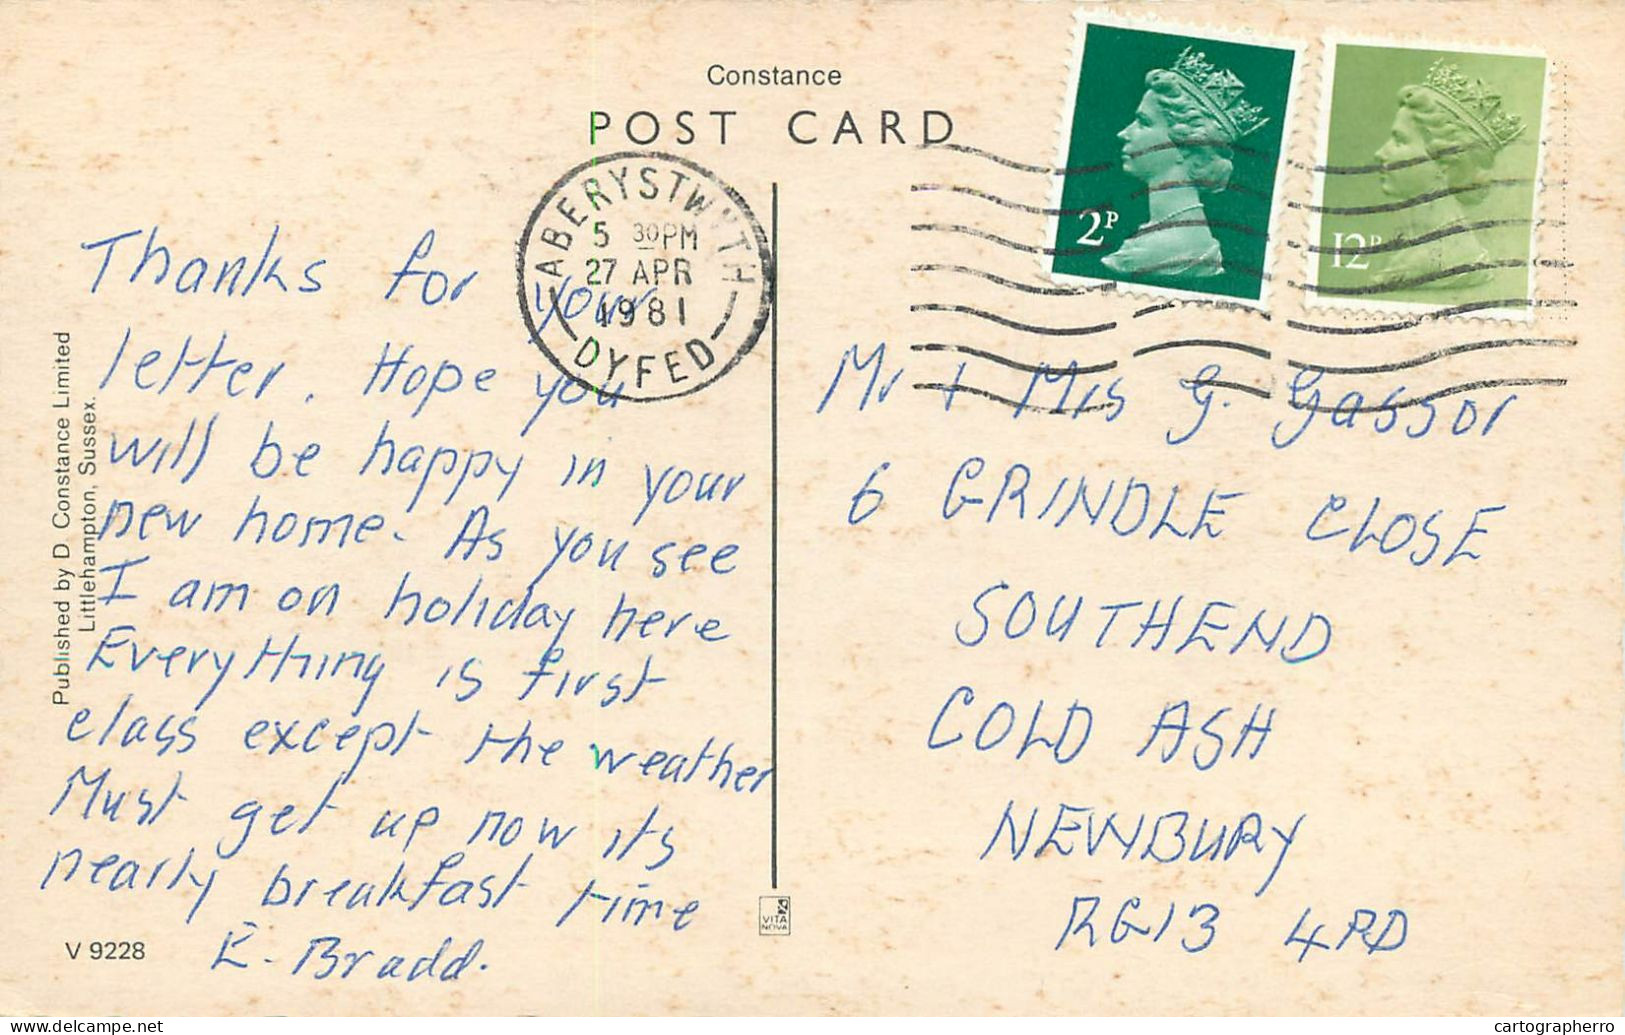 Constance
POST CARD
ABERYSTWYTH
5 30PM
27 APR
1981
DYFED
2P
12P
Thanks for your
letter. Hope you
will be happy in your
new home. As you see
I am on holiday here
Everything is first
class except the weather
Must get up now its
nearly breakfast time
E. Bradd.
Mr + Mrs G. Gassor
6 GRINDLE CLOSE
SOUTHEND
COLD ASH
NEWBURY
RG13 4PD
Published by D Constance Limited
Littlehampton, Sussex.
V 9228
VITA
NOVA
delcampe.net
cartographerro